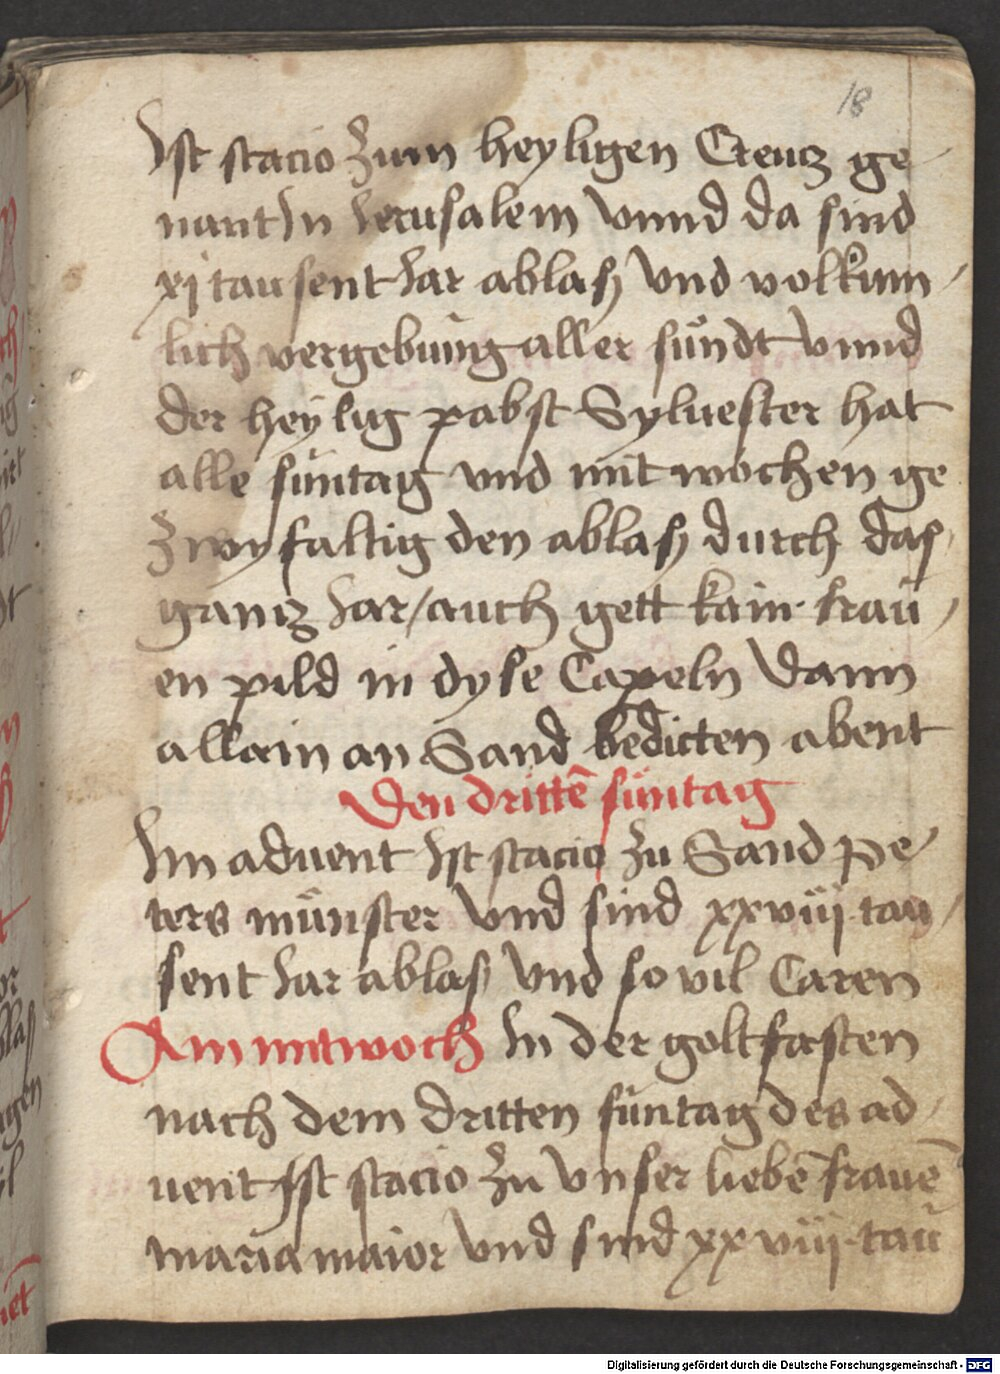 18
Ist stacio zum heyligen Creucz ge-
nant In Jerusalem vnnd da sind
xj tausent Jar ablaß vnd volkum-
lich vergebung aller sündt vnnd
der heylig pabst Syluester hat
alle suntag vnd mitwochen ge
zwyfaltig den ablaß durch das
gancz Jar/auch gett kain frau-
en pild in dyse Capeln dann
allain an Sand bedicten abent
Den drittē suntag
Im aduent Ist stacio zu Sand Pe-
ters münster vnd sind xxviij tau-
sent Jar ablaß vnd so vil Caren
Am mitwoch In der goltfasten
nach dem dritten suntag des ad-
uent Ist stacio zu vnser liebē frauē
maria maior vnd sind xxviij tau
Digitalisierung gefördert durch die Deutsche Forschungsgemeinschaft - DFG